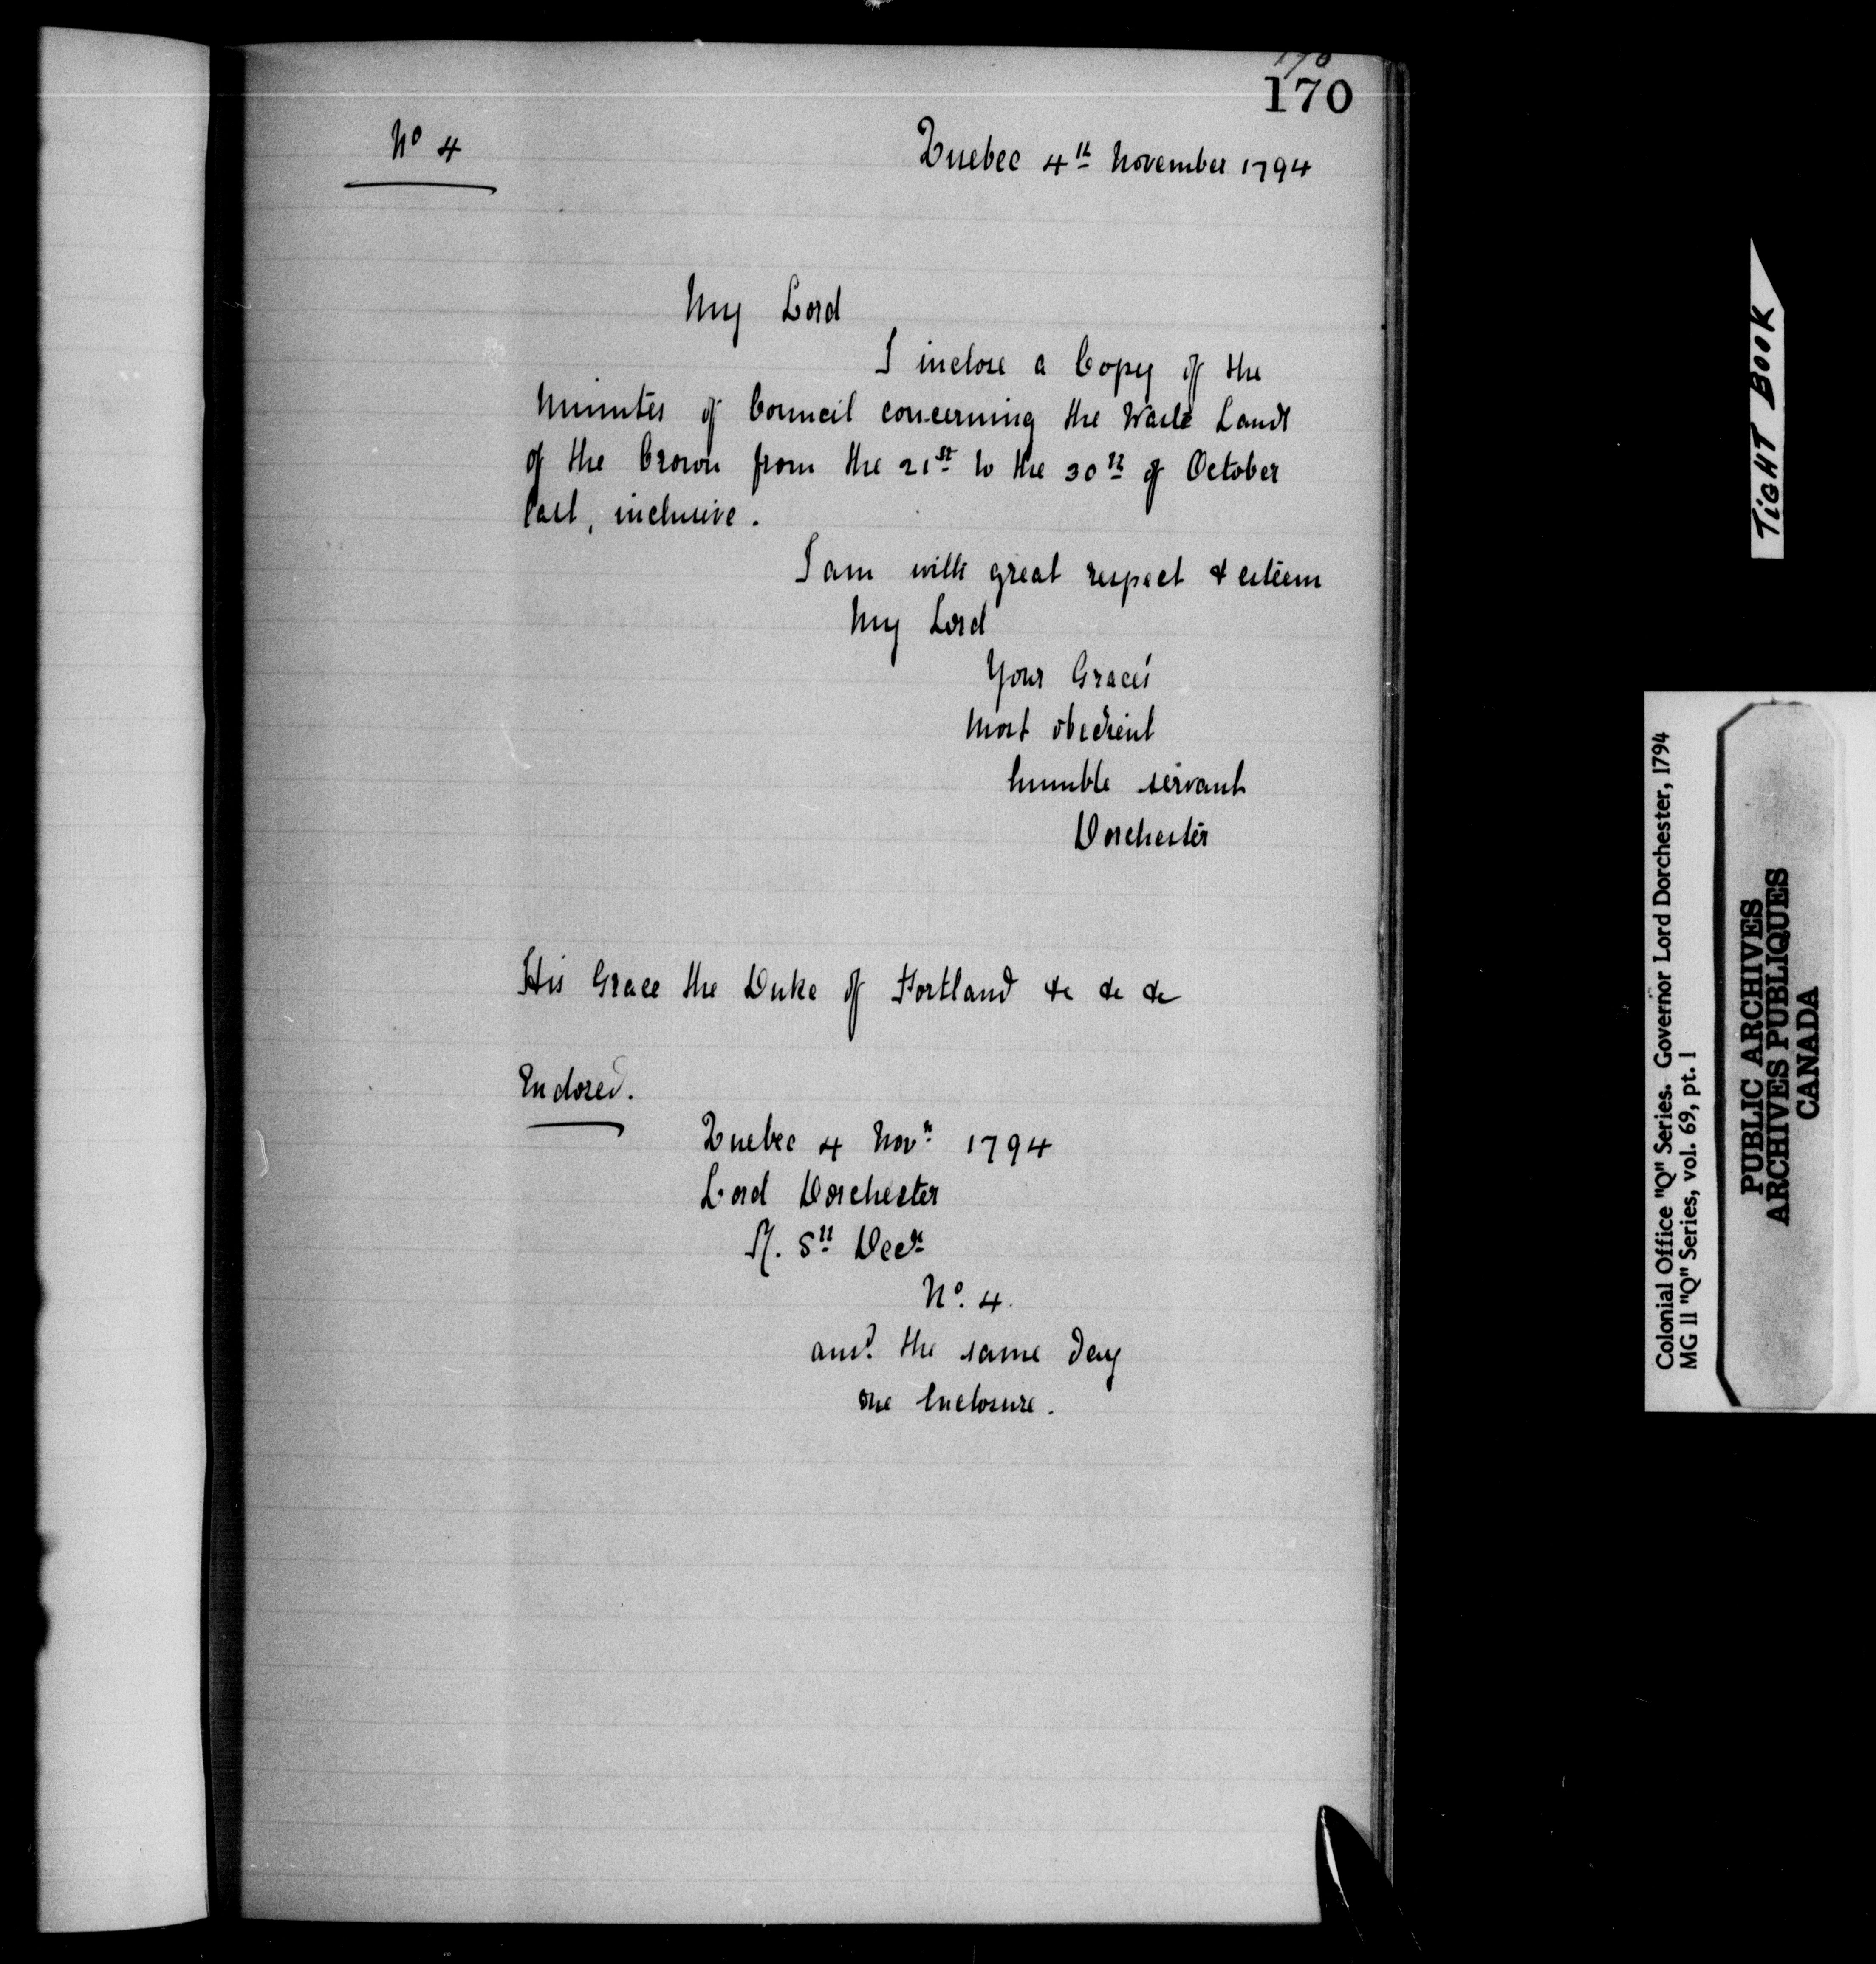 170
170
No 4
Quebec 4th November 1794
My Lord
I inclose a Copy of the
Minutes of Council concerning the Waste Lands
of the Crown from the 21st to the 30th of October
last, inclusive.
I am with great respect & esteem
My Lord
Your Grace's
most obedient
humble servant
Dorchester
His Grace the Duke of Portland &c &c &c
Endorsed.
Quebec 4 Novr 1794
Lord Dorchester
R. 8th Decr
No. 4.
ansd. the same day
one Enclosure.
TIGHT BOOK
Colonial Office "Q" Series. Governor Lord Dorchester, 1794
MG 11 "Q" Series, vol. 69, pt. 1
PUBLIC ARCHIVES
ARCHIVES PUBLIQUES
CANADA